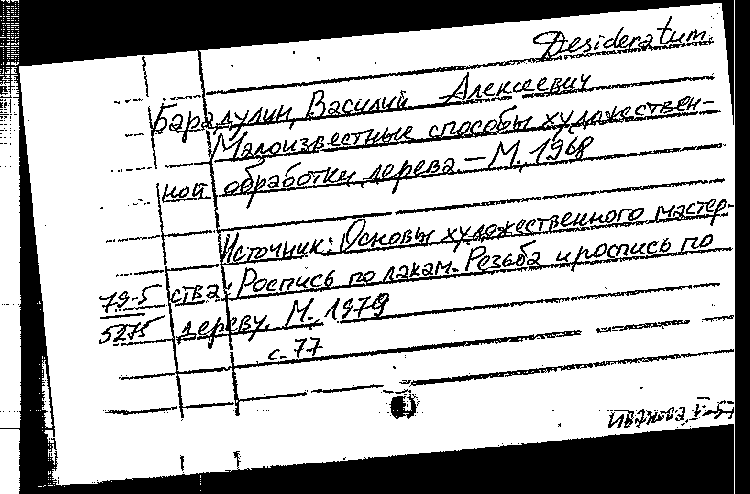 Desideratum.
Барадулин, Василий Алексеевич
Малоизвестные способы художествен-
ной обработки дерева. – М., 1968
Источник: Основы художественного мастер-
ства: Роспись по лакам. Резьба и роспись по
дереву. М. 1979
с. 77
79-5
5275
Иванова, V-57